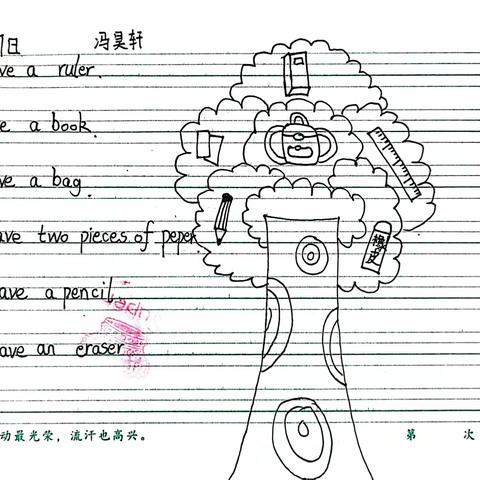 日 冯昊轩
ve a ruler.
e a book.
ve a bag.
ave two pieces of peper
ave a pencil.
ave an eraser
橡皮
动最光荣，流汗也高兴。 第 次